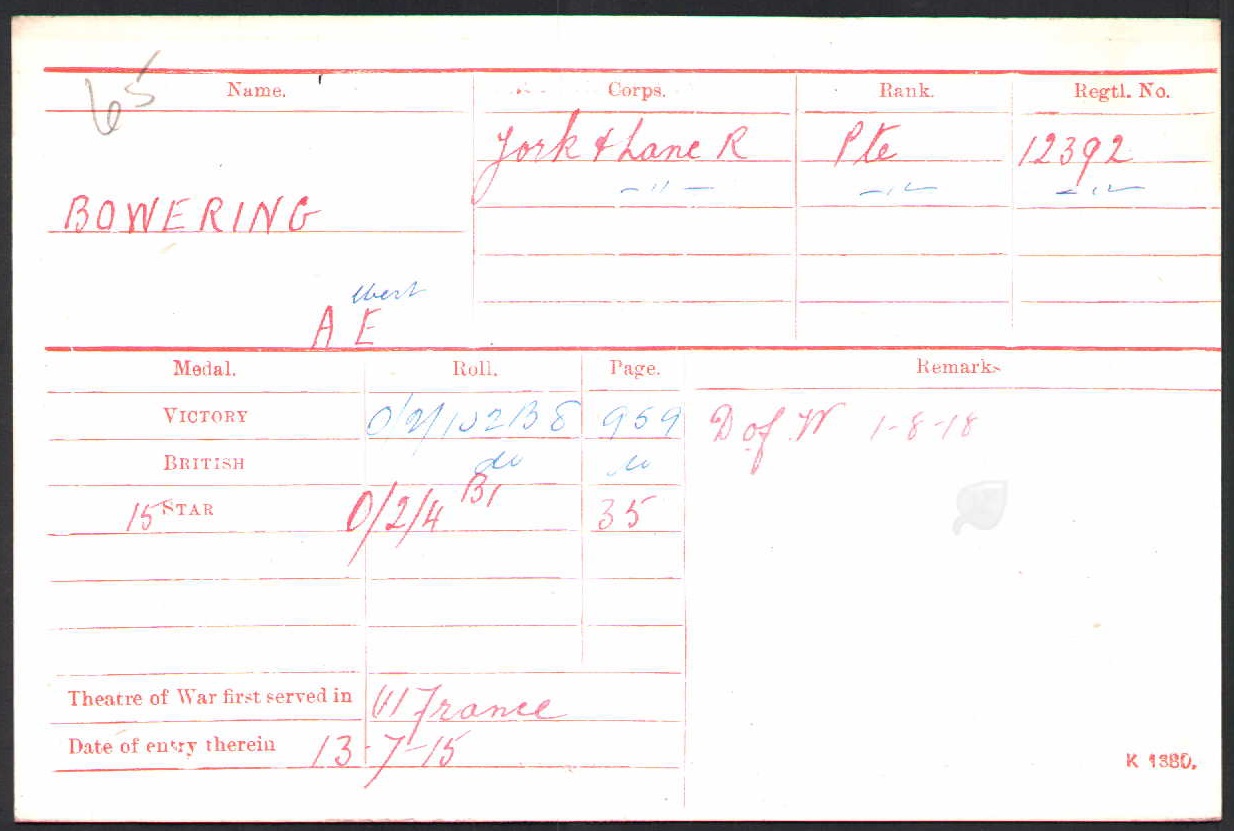 65
Name. Corps. Rank. Regtl. No.
York & Lanc R Pte 12392
–"– –"– –"–
BOWERING
lbert
A E
Medal. Roll. Page. Remarks
VICTORY O/2/102B8 959 D of W 1-8-18
BRITISH do do
15 STAR 0/2/4 B1 35
Theatre of War first served in (1) France
Date of entry therein 13-7-15
K 1380.